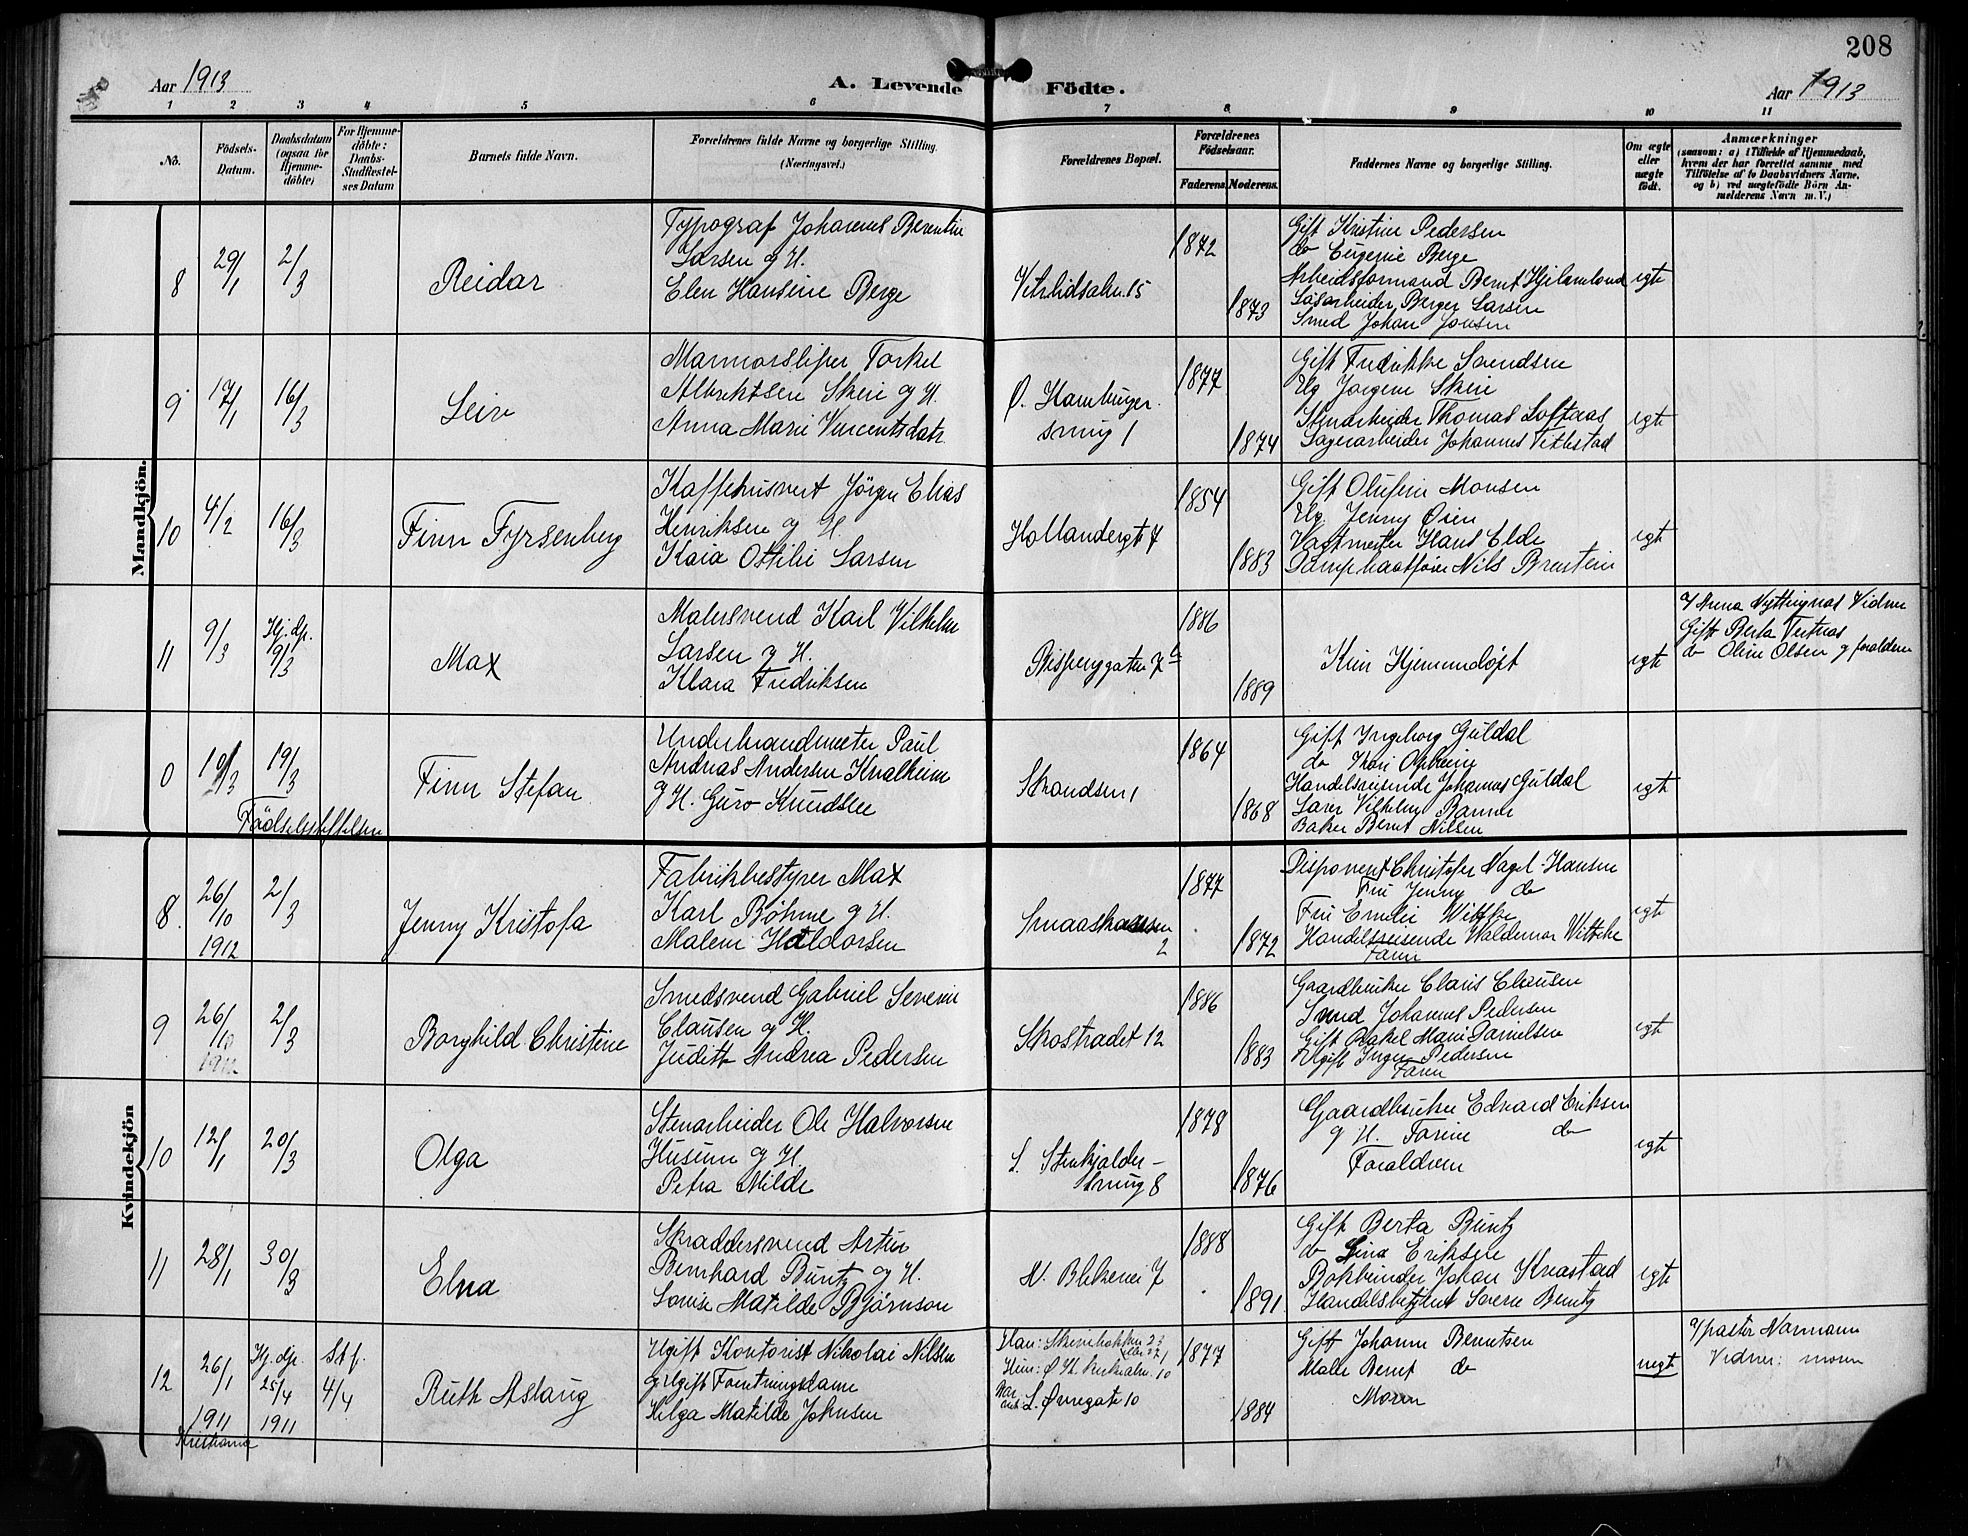 208
Aar 1913
A. Levende Födte.
Aar 1913
1 2 3 4 5 6 7 8 9 10 11
No.
Födsels-
Datum.
Daabsdatum
(ogsaa for
Hjemme-
döbte)
For Hjemme-
döbte:
Daabs-
Stadfæstel-
ses Datum
Barnets fulde Navn.
Forældrenes fulde Navne og borgerlige Stilling.
(Næringsvei.)
Forældrenes Bopæl.
Forældrenes
Födselsaar.
Faderens. Moderens.
Faddernes Navne og borgerlige Stilling.
Om ægte
eller
uægte
födt.
Anmærkninger
(saasom: a) i Tilfælde af Hjemmedaab,
hvem der har forrettet samme med
Tilföielse af to Daabsvidners Navne,
og b) ved uægtefödte Börn An-
melderens Navn m. V.)
Mandkjön.
8
29/1
2/3
Reidar
Typograf Johannes Berentin
Larsen og H.
Elen Hansine Berge
Vetrlidsalm. 15
1872
1873
Gift Kristine Pedersen
do Eugenie Berge
Arbeidsformand Bernt
Berger Larsen
Smed Johan Jonsen
egte
9
17/1
16/3
Leiv
Marmorsliper Torkel
Albriktsen Skeie og H.
Anna Marie Vincentsdatr
Ø. Hamburger-
smug 1
1877
1874
Gift Fredrikke Svendsen
Ug Jørgine Skeie
Stenarbeider Thomas Loftaas
Lagerarbeider Johannes
egte
10
4/2
16/3
Finn Fyrsenberg
Kaffehusvert Jörgen Elias
Henriksen og H.
Kaia Ottilie Larsen
Hollandergt 7
1854
1883
Gift Olufine Monsen
Ug. Jenny Øien
Vagtmester Hans Elde
Dampbaatfører Nils
egte
11
9/3
Hj. dp.
9/3
Max
Malersvend Karl Vilhelm
Larsen og H.
Klara Fredriksen
1886
1889
Kun Hjemmedøpt
egte
Vidner
Gift Berta Tertnes
do Oline Olsen og foraldrene
0
10/3
19/3
Finn Stefan
Underbrandmester Paul
Andreas Andersen Kvalheim
og H. Guro Knudsen
Skandsen 1
1864
1868
Gift Ingeborg Guldal
do Kari
Handelsreisende Johannes Guldal
Vilhelm
Baker Bernt Nilsen
egte
Kvindekjön
8
26/10
1912
2/3
Jenny Kristofa
Fabrikbestyrer Max
Karl Böhme og H.
Malene Haldorsen
Smaaskansen
2
1877
1872
Disponent Christofer Nagel-Hansen
Fru Jenny do
Fru Emilie Wittke
Handelsreisende Waldemar Wittke
Faren
egte
9
26/10
1912
2/3
Borghild Christine
Smedsvend Gabriel Severin
Clausen og H.
Judith Andrea Pedersen
Skostrædet 12
1886
1883
Gaardbruker Claus Clausen
Svend Johannes Pedersen
Gift Rakel Marie Danielsen
Ugift Inger Pedersen
Faren
egte
10
12/1
20/3
Olga
Stenarbeider Ole Halvorsen
Husum og H.
Petra Milde
L. Stenkjelder-
smug 8
1878
1876
Gaardbruker Edvard Eriksen
og H. do
Foraldrene
egte
11
28/1
30/3
Elna
Skraddersvend Artur
Bernhard Buntz og H.
Lovise Matilde Bjørnson
N. Blekevei 7
1888
1891
Gift Berta Buntz
do Lina Eriksen
Bokbinder Johan
Handelsbetjent Buntz
egte
12
26/1
1911
Kristiania
Hj. dp.
25/4
1911
Stf.
4/4
Ruth Aslaug
Ugift Kontorist Nikolai Nilsen
og Ugift Forretningsdame
Helga Matilde Johnsen
L. Øvregate 10
1877
1884
Gift Johanne Berntsen
Bernt do
Moren
uegte
v/ pastor Normann
Vidner: moren